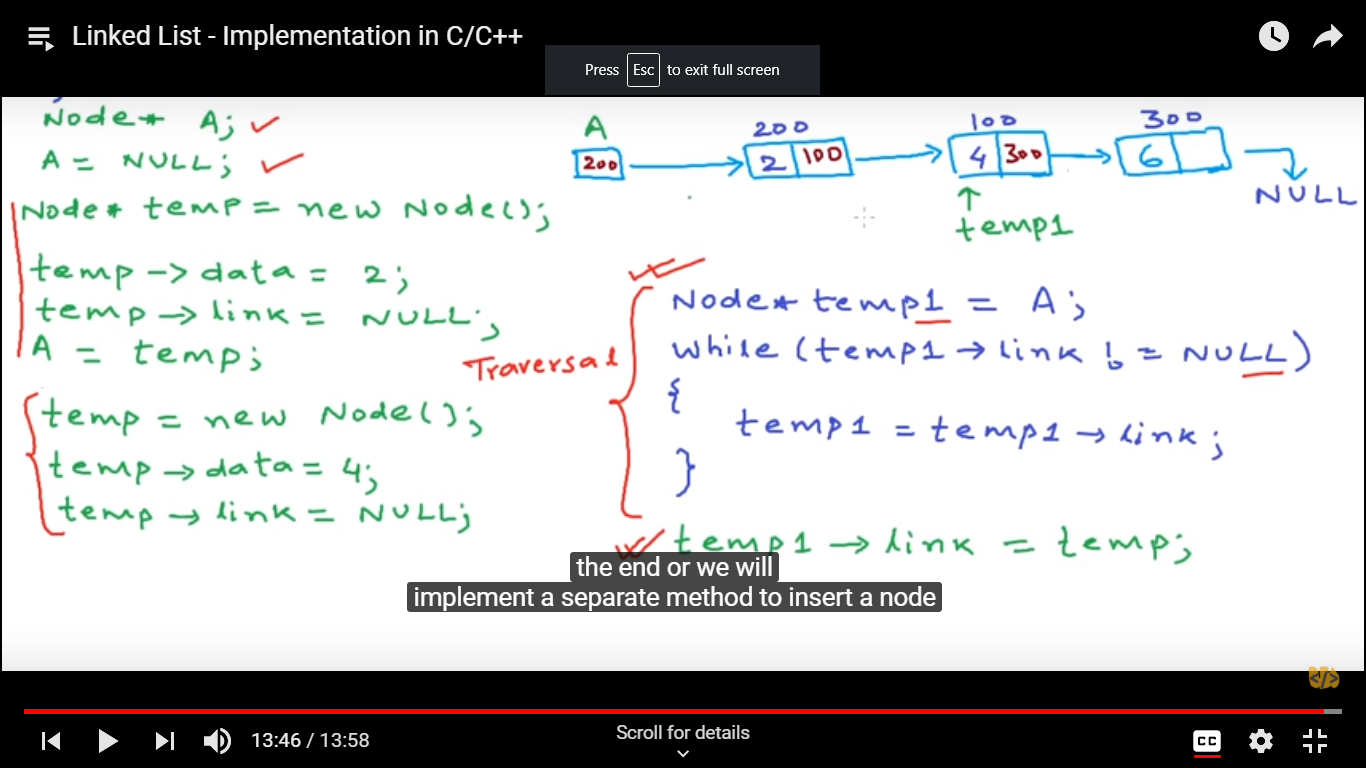 Linked List - Implementation in C/C++
Press Esc to exit full screen
Node* A;
A = NULL;
Node* temp = new Node();
temp -> data = 2;
temp -> link = NULL;
A = temp;
temp = new Node();
temp -> data = 4;
temp -> link = NULL;
A 200 100 300
200 2 100 4 300 6
NULL
temp1
Traversal
Node* temp1 = A;
while (temp1 -> link != NULL)
{
temp1 = temp1 -> link;
}
temp1 -> link = temp;
the end or we will
implement a separate method to insert a node
</>
13:46 / 13:58
Scroll for details
CC